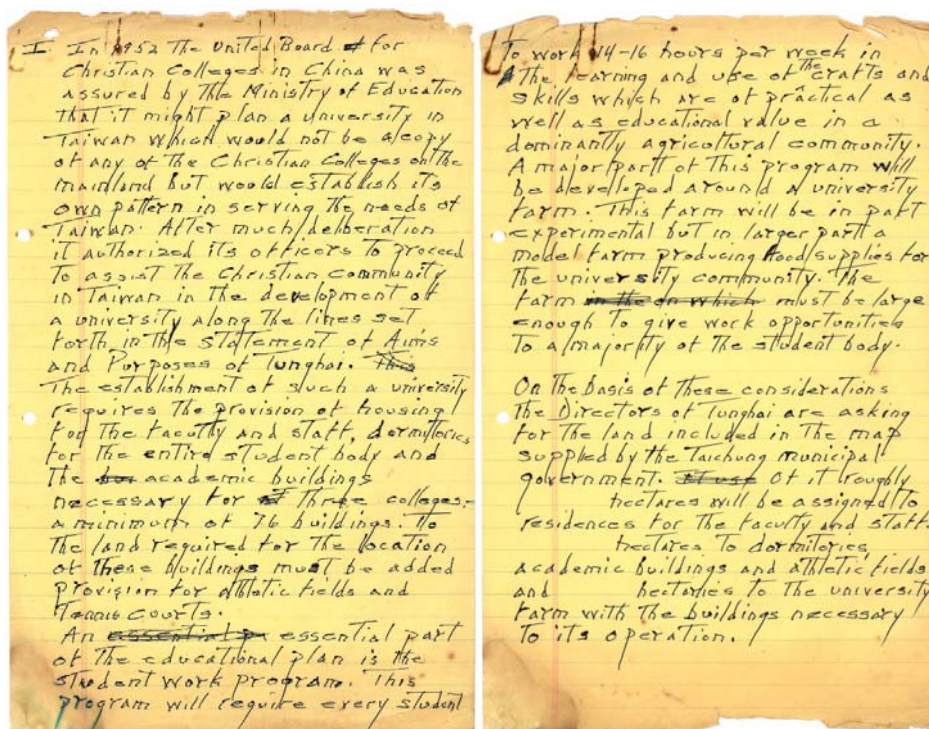 I. In 1952 The United Board for
Christian Colleges in China was
assured by the Ministry of Education
that it might plan a university in
Taiwan which would not be a copy
of any of the Christian Colleges on the
mainland but would establish its
own pattern in serving the needs of
Taiwan. After much deliberation
it authorized its officers to proceed
to assist the Christian community
in Taiwan in the development of
a university along the lines set
forth in the statement of Aims
and Purposes of Tunghai. This
The establishment of such a university
requires the provision of housing
for the faculty and staff, dormitories
for the entire student body and
the academic buildings
necessary for three colleges -
a minimum of 76 buildings. To
the land required for the location
of these buildings must be added
provision for athletic fields and
Tennis courts.
An essential essential part
of the educational plan is the
student work program. This
program will require every student
To work 14-16 hours per week in
the learning and use of the crafts and
skills which are of practical as
well as educational value in a
dominantly agricultural community.
A major part of this program will
be developed around a university
farm. This farm will be in part
experimental but in larger part a
model farm producing food supplies for
the university community. The
farm in the on which must be large
enough to give work opportunities
to a majority of the student body.
On the basis of these considerations
the Directors of Tunghai are asking
for the land included in the map
supplied by the Taichung municipal
government. It use Of it roughly
hectares will be assigned to
residences for the faculty and staff
hectares to dormitories,
academic buildings and athletic fields
and hectaries to the university
farm with the buildings necessary
to its operation.